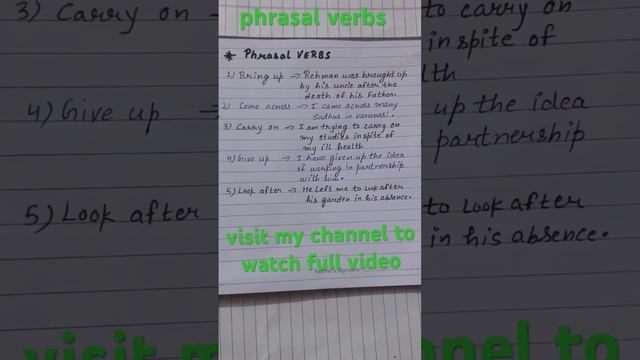 phrasal verbs
* Phrasal VERBS
1) Bring up → Rehman was brought up
by his uncle after the
death of his Father.
2) Come across → I came across many
Sadhus in varanasi.
3) Carry on → I am trying to carry on
my studies inspite of
my ill health
4) Give up → I have given up the idea
of working in partnership
with him.
5) Look after → He left me to look after
his garden in his absence.
visit my channel to
watch full video
3) Carry on →
4) Give up →
5) Look after
visit my
to carry on
inspite of
lth
up the idea
partnership
to look after
in his absence.
nnel to